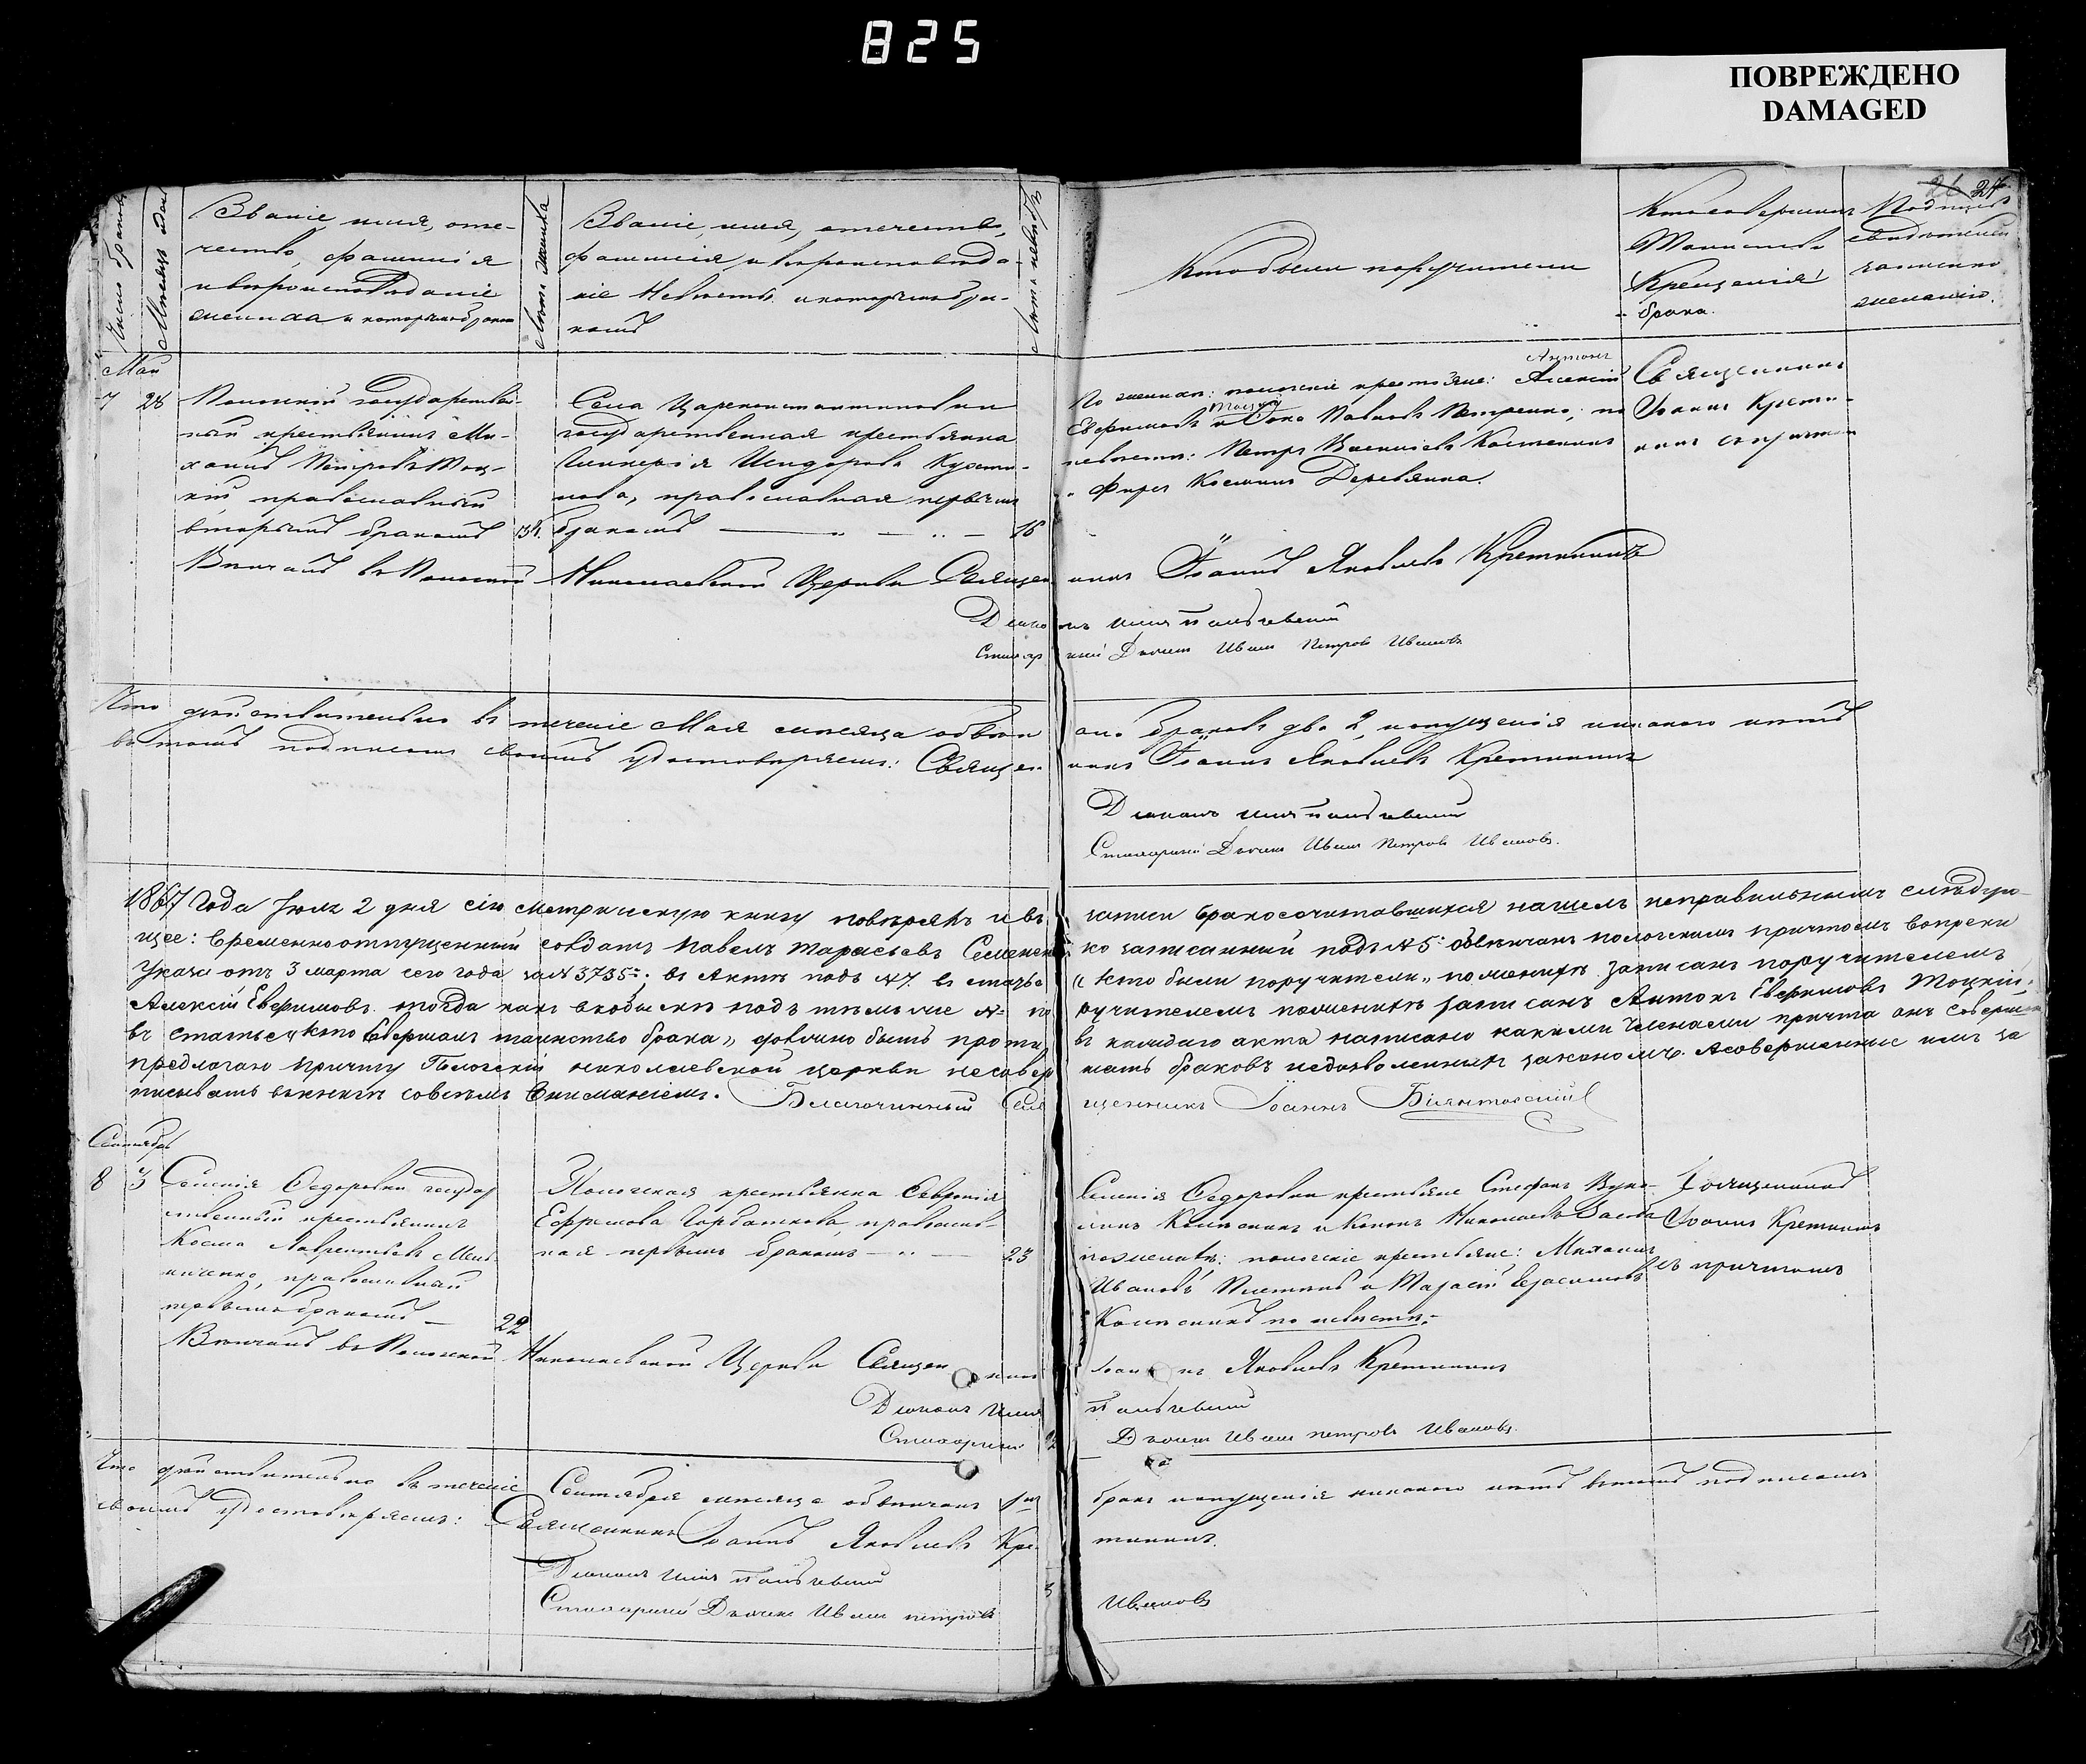 825
ПОВРЕЖДЕНО
DAMAGED
Число браковъ
Мѣсяцъ день
Званіе, имя, оте-
чество, фамилія
и вѣроисповѣданіе
жениха и которымъ бракомъ
Лѣта жениха
Званіе, имя, отечество,
фамилія и вѣроисповѣда-
ніе невѣсты и которымъ бра-
комъ
Лѣта невѣсты
Кто были поручители
Кто совершалъ
Таинство
Крещенія
брака.
Подпись
свидѣтелей
записи по
желанію.
24
Май
7 28
Пологскій государствен-
ный крестьянинъ Ми-
хаилъ Петровъ Тоц-
кій, православный
вторымъ бракомъ
Села Цареконстантиновки
государственная крестьянка
Гликерія Исидорова
православная первымъ
бракомъ 16
Антонъ
По женихѣ: пологскіе крестьяне: Алексій
Тоцкій
Евфимовъ и Павловъ Петренко; по
невѣстѣ: Петръ Василіевъ
Козминъ Деревянка.
Священникъ
Іоаннъ Крети-
нинъ съ причтомъ
Вѣнчанъ въ Пологской Николаевской Церкви Священникъ Іоаннъ Яковлевъ Кретининъ
Діаконъ Илія
Стихарный Дьячекъ Иванъ Петровъ Ивановъ
Что дѣйствительно въ теченіе Мая мѣсяца обвѣнчано браковъ два 2, и опущенія никакого нѣтъ
въ томъ подписомъ своимъ удостовѣряемъ: Священникъ Іоаннъ Яковлевъ Кретининъ
Діаконъ Илія
Стихарный Дьячекъ Иванъ Петровъ Ивановъ.
1867 Года Іюля 2 дня сію метрическую книгу повѣрялъ и въ записи бракосочитавшихся нашелъ неправильнымъ слѣдую-
щее: временноотпущенный солдатъ Павелъ Тарасьевъ Семененко записанный подъ № 5: обвѣнчанъ пологскимъ причтомъ вопреки
Указа отъ 3 марта сего года за № 3735; въ Актѣ подъ № 7. въ статьѣ „кто были поручители„ по женихѣ записанъ поручителемъ
Алексій Евфимовъ тогда какъ въ обыскѣ подъ тѣмъ же № поручителемъ по женихѣ записанъ Антонъ Евфимовъ Тоцкій;
въ статьѣ „кто совершалъ таинство брака„ должно быть противъ каждаго акта написано какими членами причта онъ совершенъ
предлагаю причту Пологской николаевской церкви не совершать браковъ недозволенныхъ закономъ. А совершенные имъ за-
писывать въ книгѣ совсѣмъ вниманіемъ. Благочинный Священникъ Іоаннъ
Сентябрь
8 3
Селенія Ѳедоровки государ
ственный крестьянинъ
Косма Лаврентьевъ
православный
первымъ бракомъ — 22
Пологская крестьянка Евфросія
Ефремова Горбаткова, православ-
ная первымъ бракомъ — 23
Селенія Ѳедоровки крестьяне Стефанъ Вуко-
ловъ Колѣсникъ и Кононъ Николаевъ
по женихѣ: пологскіе крестьяне: Михаилъ
Ивановъ и Тарасій Герасимовъ
Колѣсникъ по невѣстѣ.
Священникъ
Іоаннъ Кретининъ
съ причтомъ
Вѣнчанъ въ Пологской Николаевской Церкви Священникъ Іоаннъ Яковлевъ Кретининъ
Діаконъ Илія
Стихарный Дьячекъ Иванъ Петровъ Ивановъ.
Что дѣйствительно въ теченіе Сентября мѣсяца обвѣнчанъ 1 бракъ и опущенія никакого нѣтъ въ томъ подписомъ
своимъ удостовѣряемъ: Священникъ Іоаннъ Яковлевъ Кретининъ.
Діаконъ Илія
Стихарный Дьячекъ Иванъ Петровъ Ивановъ